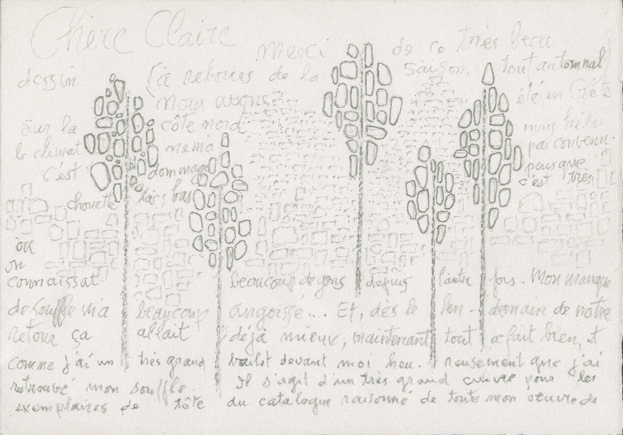 Chère Claire
merci de ce très beau
dessin (à rebours de la saison. tout automnal)
Nous avons été en Crète
sur la côte nord
le climat ne m'a par convenu.
c'est dommage parsque
chouette là bas c'est très
où
on
connaissat beaucoup de gens depuis l'autre fois. Mon manque
de souffle m'a beaucoup angoissé... Et, dès le len-demain de notre
retour ça allait déjà mieux, maintenant tout a fait bien, et
comme j'ai un très grand boulot devant moi heu-reusement que j'ai
retrouvé mon souffle. Il s'agit d'un très grand cuivre pour les
exemplaires de tête du catalogue raisonné de toute mon oeuvre de